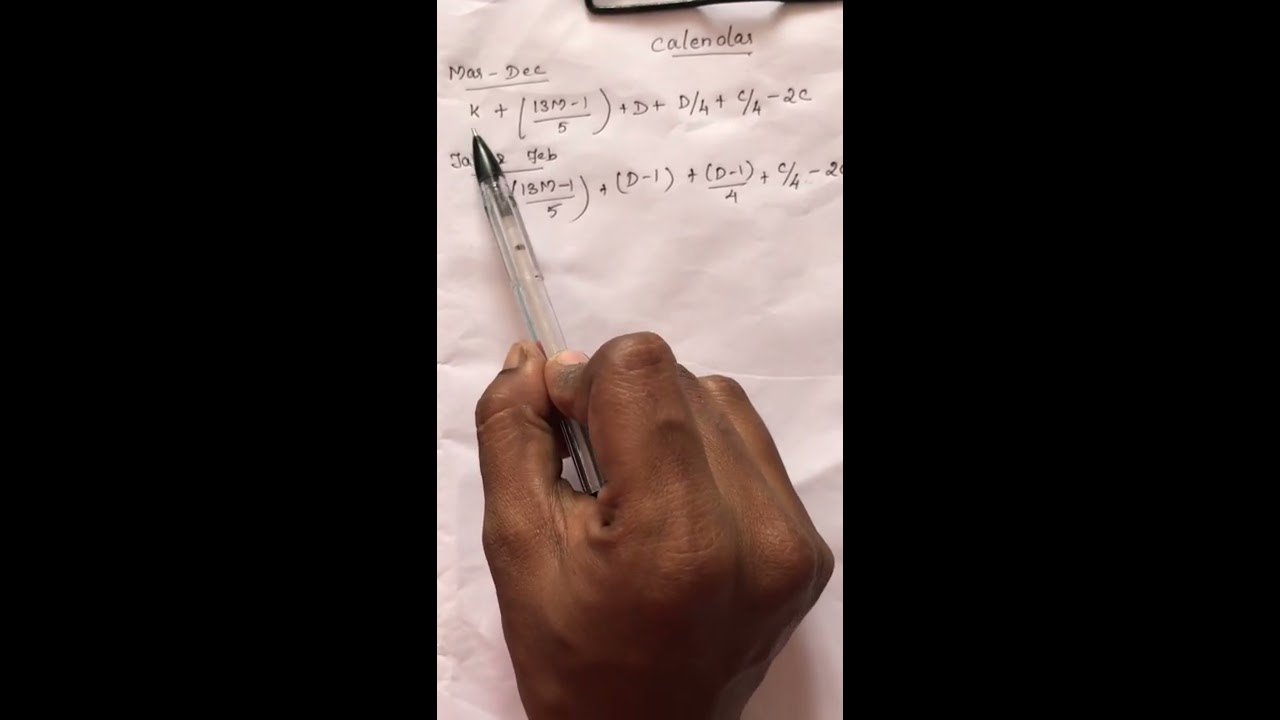 Calendar
Mar - Dec
K + (13M-1/5) + D + D/4 + C/4 - 2C
Feb
(13M-1/5) + (D-1) + (D-1)/4 + C/4 - 2C